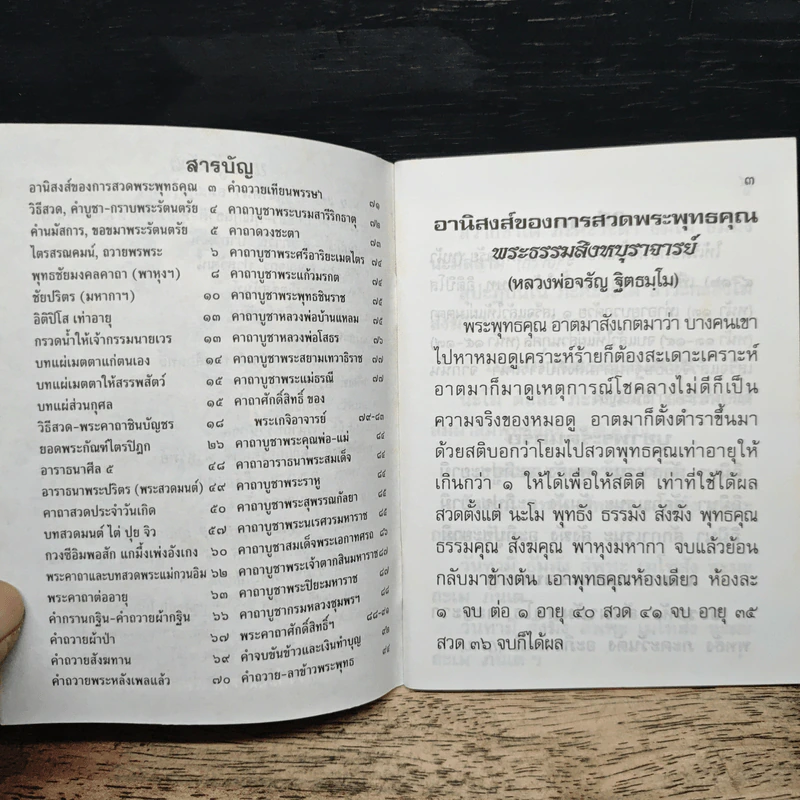 สารบัญ
อานิสงส์ของการสวดพระพุทธคุณ ๓
วิธีสวด, คำบูชา-กราบพระรัตนตรัย ๔
คำนมัสการ, ขอขมาพระรัตนตรัย ๕
ไตรสรณคมน์, ถวายพรพระ ๖
พุทธชัยมงคลคาถา (พาหุงฯ) ๘
ชัยปริตร (มหากาฯ) ๑๐
อิติปิโส เท่าอายุ ๑๓
กรวดน้ำให้เจ้ากรรมนายเวร ๑๓
บทแผ่เมตตาแก่ตนเอง ๑๔
บทแผ่เมตตาให้สรรพสัตว์ ๑๕
บทแผ่ส่วนกุศล ๑๕
วิธีสวด-พระคาถาชินบัญชร ๑๘
ยอดพระกัณฑ์ไตรปิฎก ๒๖
อาราธนาศีล ๕ ๔๘
อาราธนาพระปริตร (พระสวดมนต์) ๔๙
คาถาสวดประจำวันเกิด ๕๐
บทสวดมนต์ ไต่ ปุย จิว ๕๗
กวงซีอิมพอสัก แกมึ้งเพ่งอังเกง ๖๐
พระคาถาและบทสวดพระแม่กวนอิม ๖๒
พระคาถาต่ออายุ ๖๓
คำกรานกฐิน-คำถวายผ้ากฐิน ๖๖
คำถวายผ้าป่า ๖๗
คำถวายสังฆทาน ๖๙
คำถวายพระหลังเพลแล้ว ๗๐
คำถวายเทียนพรรษา ๗๑
คาถาบูชาพระบรมสารีริกธาตุ ๗๒
คาถาดวงชะตา ๗๓
คาถาบูชาพระศรีอาริยะเมตไตร ๗๔
คาถาบูชาพระแก้วมรกต ๗๔
คาถาบูชาพระพุทธชินราช ๗๕
คาถาบูชาหลวงพ่อบ้านแหลม ๗๕
คาถาบูชาหลวงพ่อโสธร ๗๖
คาถาบูชาพระสยามเทวาธิราช ๗๗
คาถาบูชาพระแม่ธรณี ๗๗
คาถาศักดิ์สิทธิ์ ของ
พระเกจิอาจารย์ ๗๙-๘๓
คาถาบูชาพระคุณพ่อ-แม่ ๘๔
คาถาอาราธนาพระสมเด็จ ๘๔
คาถาบูชาพระราหู ๘๔
คาถาบูชาพระสุพรรณกัลยา ๘๕
คาถาบูชาพระนเรศวรมหาราช ๘๕
คาถาบูชาสมเด็จพระเอกาทศรถ ๘๖
คาถาบูชาพระเจ้าตากสินมหาราช ๘๗
คาถาบูชาพระปิยะมหาราช ๘๗
คาถาบูชากรมหลวงชุมพรฯ ๘๗
พระคาถาศักดิ์สิทธิ์ฯ
คำจบขันข้าวและเงินทำบุญ
คำถวาย-ลาข้าวพระพุทธ
๓
อานิสงส์ของการสวดพระพุทธคุณ
พระธรรมสิงหบุราจารย์
(หลวงพ่อจรัญ ฐิตธมฺโม)
พระพุทธคุณ อาตมาสังเกตมาว่า บางคนเขา
ไปหาหมอดูเคราะห์ร้ายก็ต้องสะเดาะเคราะห์
อาตมาก็มาดูเหตุการณ์โชคลางไม่ดีก็เป็น
ความจริงของหมอดู อาตมาก็ตั้งตำราขึ้นมา
ด้วยสติบอกว่าโยมไปสวดพุทธคุณเท่าอายุให้
เกินกว่า ๑ ให้ได้เพื่อให้สติดี เท่าที่ใช้ได้ผล
สวดตั้งแต่ นะโม พุทธัง ธรรมัง สังฆัง พุทธคุณ
ธรรมคุณ สังฆคุณ พาหุงมหากา จบแล้วย้อน
กลับมาข้างต้น เอาพุทธคุณห้องเดียว ห้องละ
๑ จบ ต่อ ๑ อายุ ๔๐ สวด ๔๑ จบ อายุ ๓๕
สวด ๓๖ จบก็ได้ผล